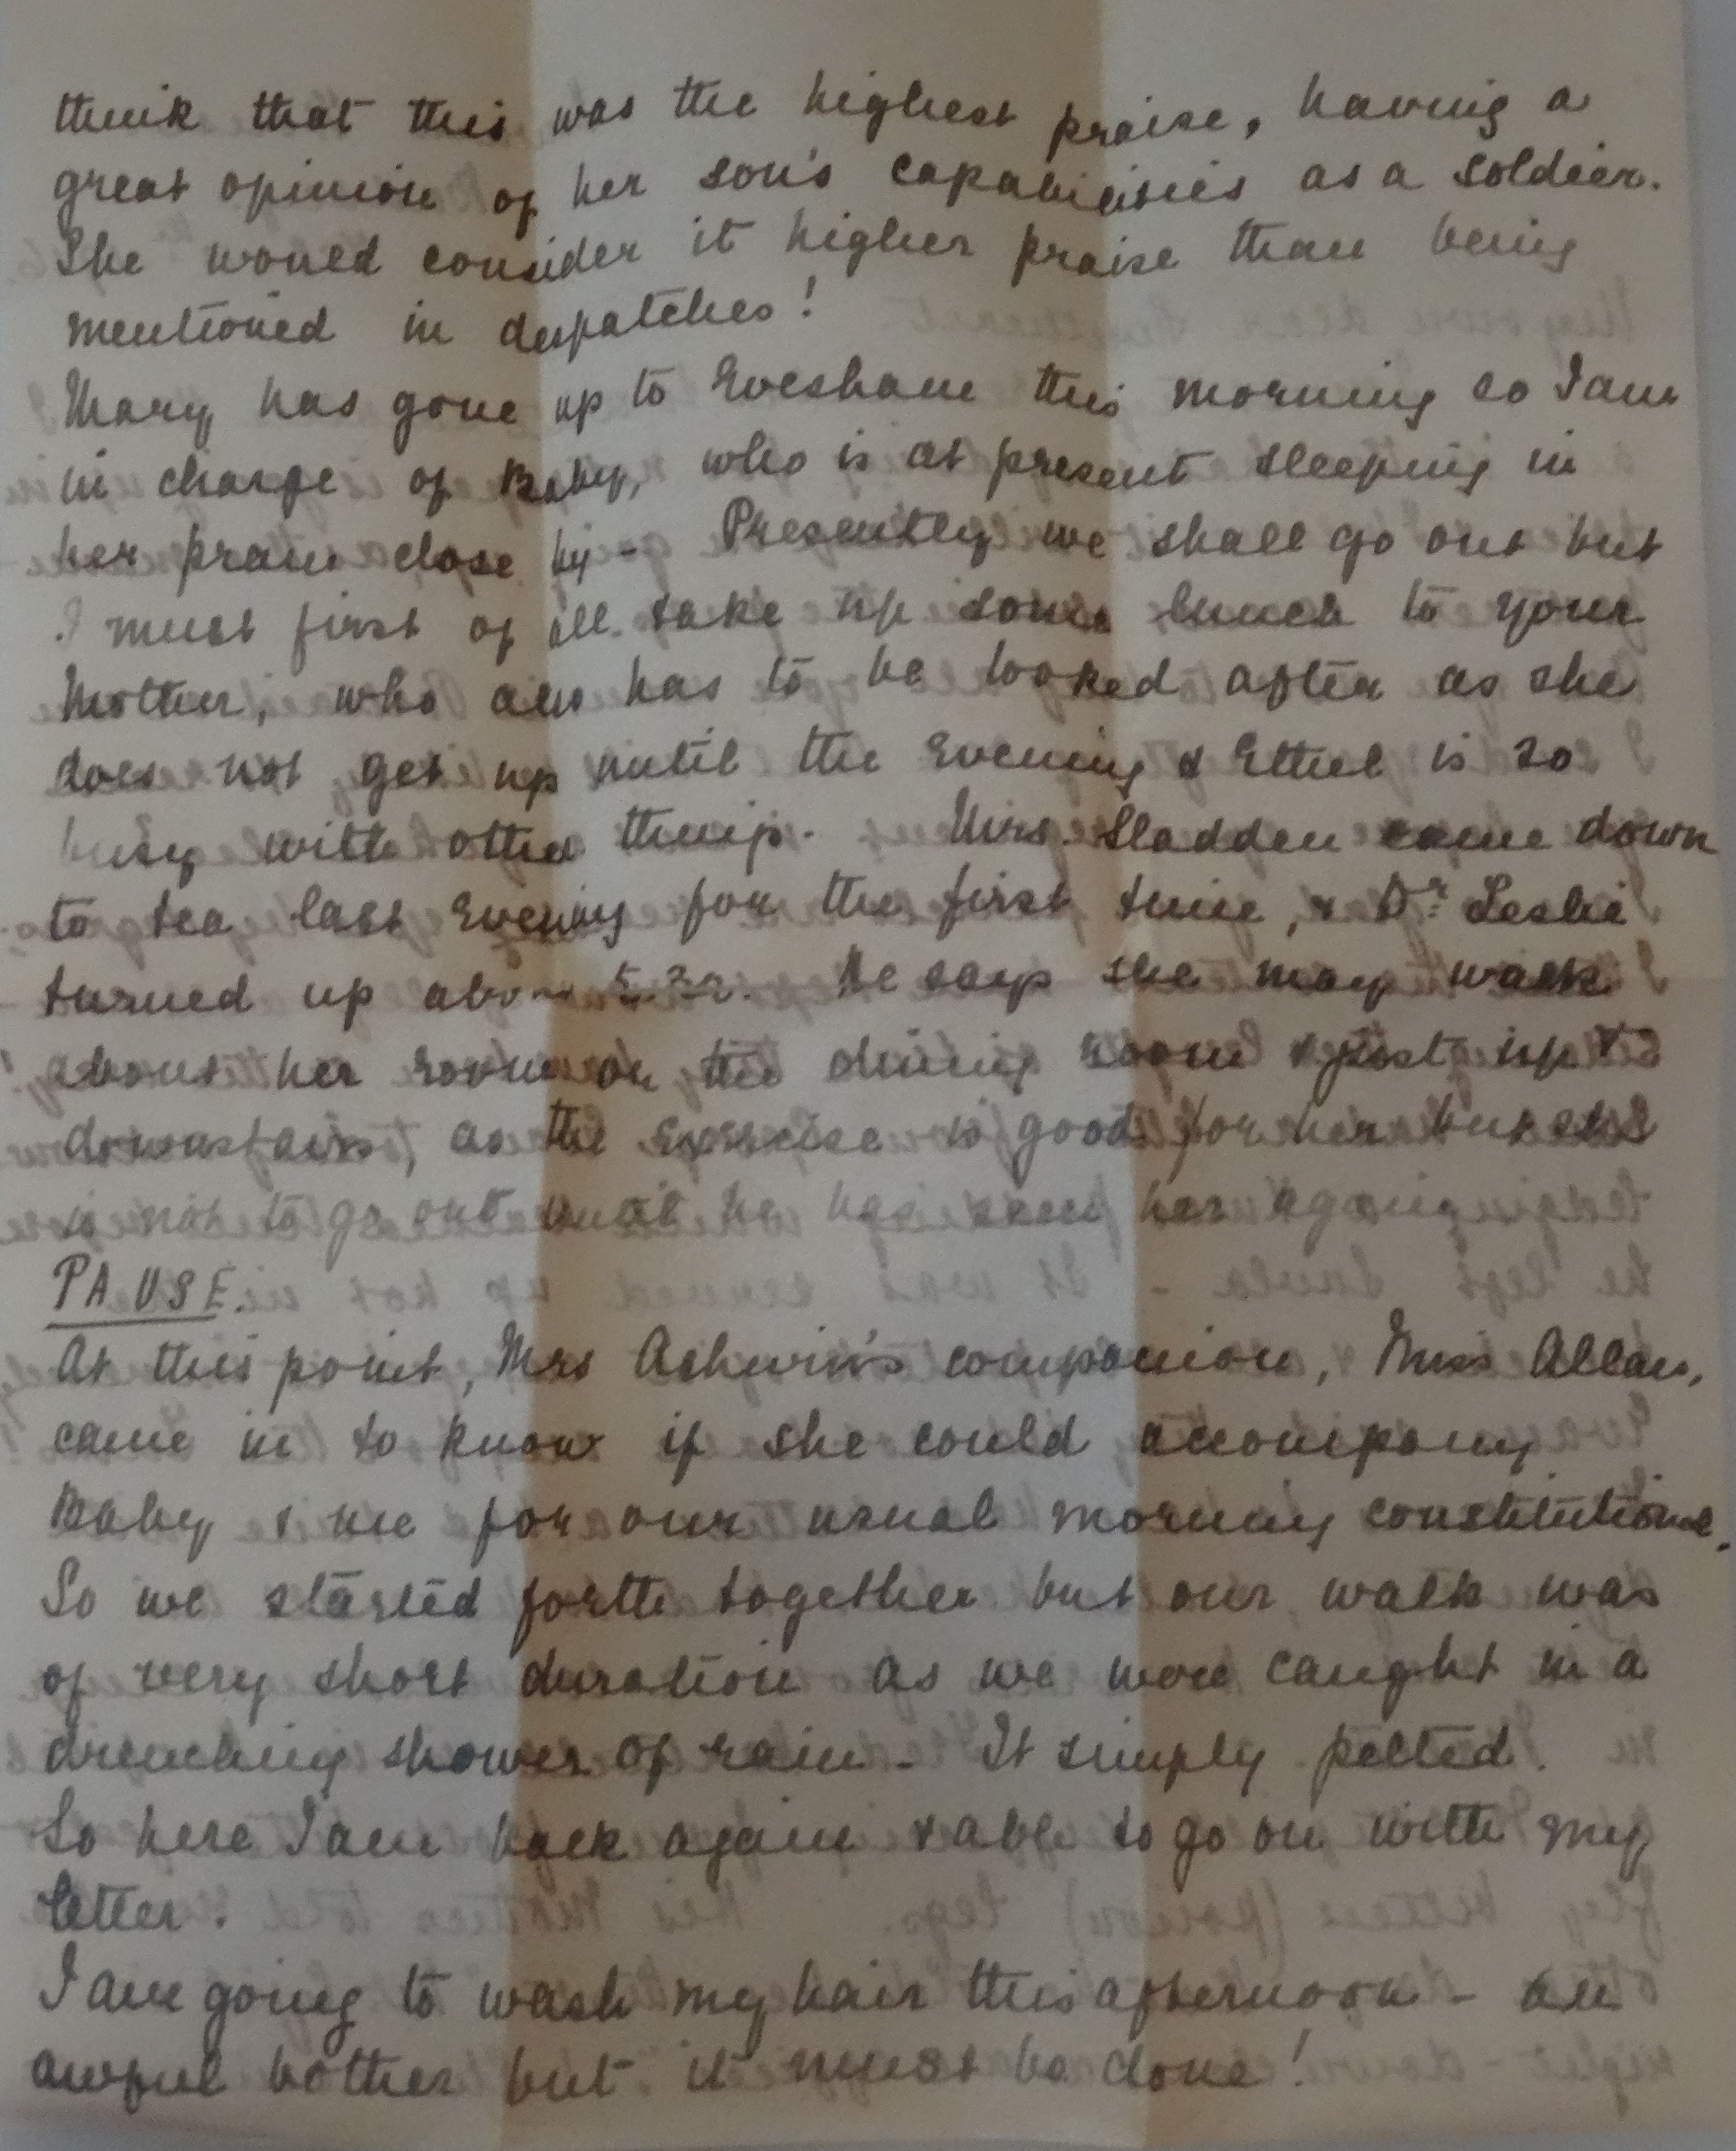 think that this was the highest praise, having a
great opinion of her son's capabilities as a soldier.
She would consider it higher praise than being
mentioned in despatches!
Mary has gone up to Evesham this morning so I am
in charge of Baby, who is at present sleeping in
her pram close by - Presently we shall go out but
I must first of all take up some lunch to your
Mother, who also has to be looked after as she
does not get up until the evening & Ethel is so
busy with other things. Mrs. Sladden came down
to tea last evening for the first time, & Dr. Leslie
turned up about 5.30. He says she may walk
about her room or the dining room & just up &
downstairs, as the exercise is good for her but she
is not to go out until he has seen her again
PAUSE.
At this point, Mrs Ashwin's companion, Miss Allan,
came in to know if she could accompany
Baby & me for our usual morning constitutional.
So we started forth together but our walk was
of very short duration as we were caught in a
drenching shower of rain - It simply pelted.
So here I am back again & able to go on with my
letter.
I am going to wash my hair this afternoon - an
awful bother but it must be done!